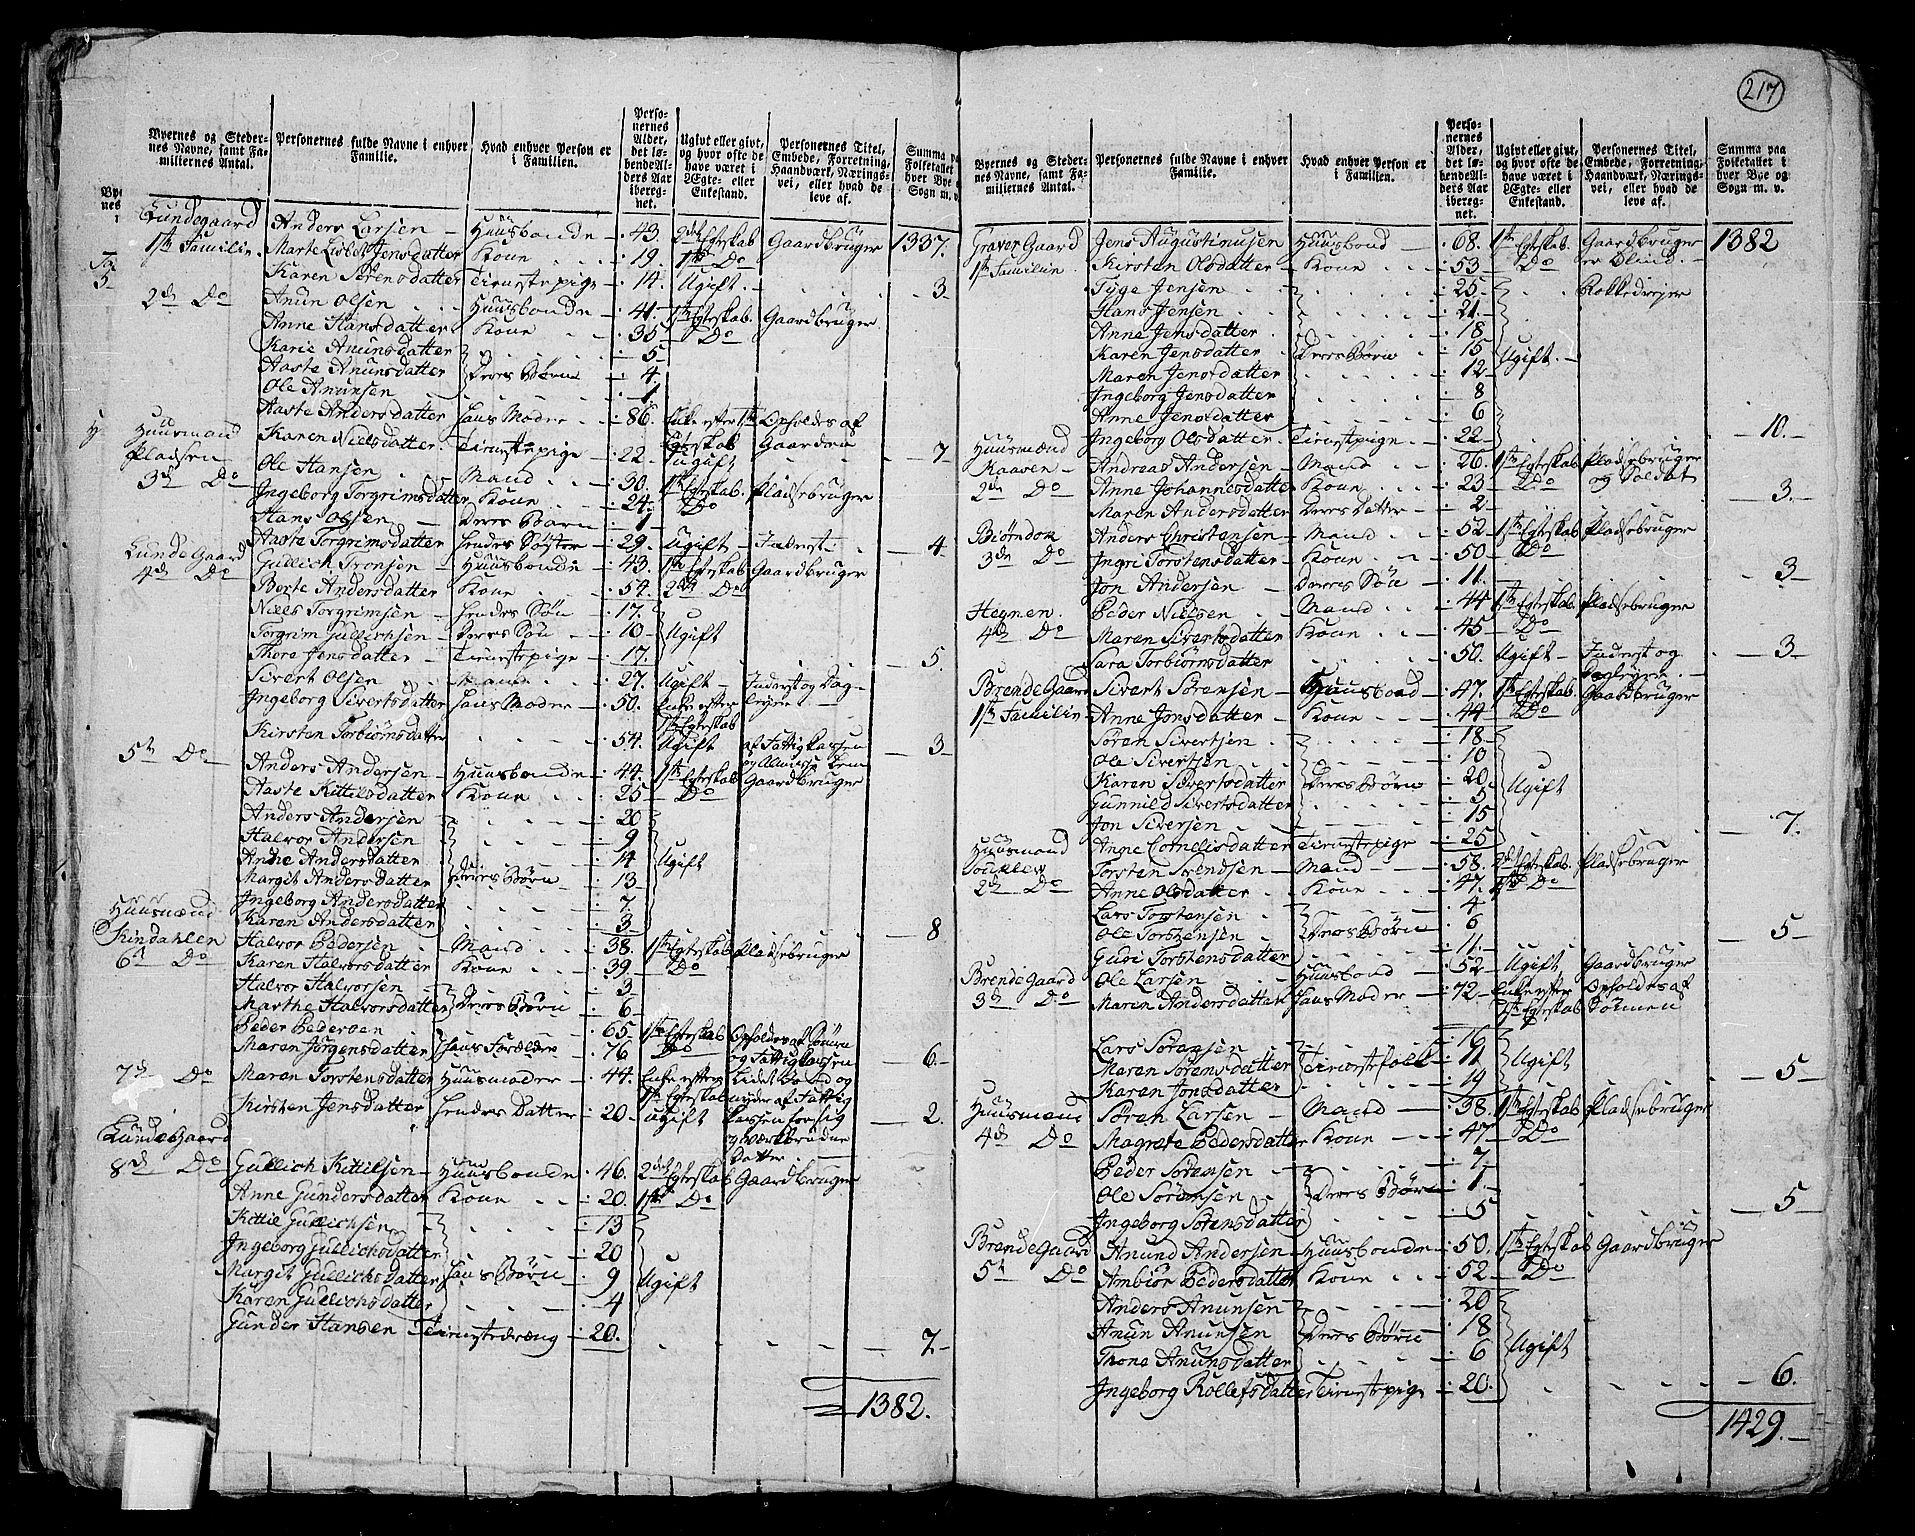 217
Byernes og Steder-
nes Navne, samt Fa-
miliernes Antal.
Personernes fulde Navne i enhver
Familie.
Hvad enhver Person er
i Familien.
Perso-
nernes
Alder,
det lø-
bende Al-
ders Aar
ibereg-
net.
Ugivt eller givt,
og hvor ofte de
have været i
Ægte- eller
Enkestand.
Personernes Titel,
Embede, Forretning,
Haandværk, Nærings-
vei, eller hvad de
leve af.
Summa paa
Folketallet i
hver Bye og
Sogn m. v.
Lundegaard Anders Larsen Huusbonde 43. 2det Egteskab Gaardbruger 1337.
1ste Familie Marte Lisbet Jensdatter Kone 19. 1ste Do
Karen Sørensdatter Tienestepige 14. Ugift 3
2den Do Anun Olsen Huusbonde 41. 1ste Egteskab Gaardbruger
Anne Hansdatter Kone 35 Do
Karie Anunsdatter 5
Aaste Anunsdatter Deres Børn 4.
Ole Anunsen 1
Aaste Andersdatter hans Moder 86. Enke efter 1ste Egteskab Opholdes af Gaarden
Huusmand Karen Nielsdatter Tienestepige 22. Ugift 7
Pladsen Ole Hansen Mand 30. 1ste Egteskab Pladsebruger
3den Do Ingeborg Torgrimsdatter Kone 24. Do
Hans Olsen Deres Barn 1
Aaste Torgrimsdatter hendes Søster 29. Ugift Inderst 4
Lunde Gaard Gullich Tronsen Huusbonde 43. 1ste Egteskab Gaardbruger
4de Do Berte Andersdatter Kone 54. 2det Do
Niels Torgrimsen hendes Søn 17.
Torgrim Gullichsen Deres Søn 10 Ugift
Thore Jensdatter Tienestepige 17. 5.
Sivert Olsen Mand 27. Ugift Inderst og Dag-
Ingeborg Sivertsdatter hans Moder 50. Enke efter leyer
1ste Egteskab
Kirsten Torbiørnsdatter 54. Ugift af Fattigkassen 3
5te Do Anders Andersen Huusbonde 44. 1ste Egteskab Gaardbruger
Aaste Kittilsdatter Kone 25 Do
Anders Andersen 20
Halvor Andersen 9
Anne Andersdatter 14 Ugift
Margit Andersdatter Deres Børn 13
Ingeborg Andersdatter 7
Huusmænd Karen Andersdatter 3 8
Halvor Pedersen Mand 38. 1ste Egteskab Pladsebruger
6te Do Karen Halvorsdatter Kone 39. Do
Halvor Halvorsen 3
Marthe Halvorsdatter Deres Børn 6
Peder Pedersen 65 1ste Egteskab Opholdes af Sønnen
Maren Jørgensdatter hans Forældre 76 Do og Fattigkassen 6.
7de Do Maren Torstensdatter Huusmoder 44. Enke efter
1ste Egteskab
Kirsten Jensdatter hendes Datter 20. Ugift 2.
Lunde Gaard
8de Do Gullich Kittilsen Huusbonde 46. 2det Egteskab Gaardbruger
Anne Gundersdatter Kone 20. 1ste Do
Kittil Gullichsen 13
Ingeborg Gullichsdatter 20
Margit Gullichsdatter hans Børn 9 Ugift
Karen Gullichsdatter 4
Gunder Hansen Tienestedræng 20. 7
1382.
Byernes og Steder-
nes Navne, samt Fa-
miliernes Antal.
Personernes fulde Navne i enhver
Familie.
Hvad enhver Person er
i Familien.
Perso-
nernes
Alder,
det lø-
bende Al-
ders Aar
ibereg-
net.
Ugivt eller givt,
og hvor ofte de
have været i
Ægte- eller
Enkestand.
Personernes Titel,
Embede, Forretning,
Haandværk, Nærings-
vei, eller hvad de
leve af.
Summa paa
Folketallet i
hver Bye og
Sogn m. v.
Graver Gaard Jens Augustinusen Huusbond 68. 1ste Egteskab Gaardbruger 1382
1ste Familie Kirsten Olsdatter Kone 53 Do er Blind.
Tyge Jensen 25 Rokkedrejer
Hans Jensen 21
Anne Jensdatter 18
Karen Jensdatter Deres Børn 15 Ugift
Maren Jensdatter 12
Ingeborg Jensdatter 8
Anne Jensdatter 6
Huusmænd Ingeborg Olsdatter Tienestepige 22 10.
Kaasen Andreas Andersen Mand 26. 1ste Egteskab Pladsebruger
2den Do Anne Johannesdatter Kone 23 Do og Soldat 3.
Maren Andersdatter Deres Datter 2
Biørndom Anders Christensen Mand 52 1ste Egteskab Pladsebruger
3den Do Ingri Torstensdatter Kone 50 Do
Jon Andersen Deres Søn 11. 3
Heynen Peder Nielsen Mand 44 1ste Egteskab Pladsebruger
4de Do Maren Sivertsdatter Kone 45 Do
Sara Torbiørnsdatter 50. Ugift Inderst og 3
Dagleyer
Brende Gaard Sivert Sørensen Huusbond 47. 1ste Egteskab Gaardbruger
1ste Familie Anne Jonsdatter Kone 44 Do
Søren Sivertsen 18
Ole Sivertsen 10
Karen Sivertsdatter Deres Børn 20 Ugift
Gunnild Sivertsdatter 5
Jon Siversen 15 7.
Huusmand Anne Cornelisdatter Tienestepige 25
Torsten Svendsen Mand 58. 2det Egteskab Pladsebruger
2den Do Anne Olsdatter Kone 47. 1ste Do
Lars Torstensen 4
Ole Torstensen Deres Børn 6 5
Gudi Torstensdatter 11.
Brende Gaard Ole Larsen Huusbond 52 Ugift Gaardbruger
3de Do Maren Andersdatter Hans Moder 72 Enke efter Opholdes af
1ste Egteskab Sønnen
Lars Sørensen 16
Maren Sørensdatter Tienestefolk 11 Ugift
Karen Jonsdatter 19 5
Huusmænd Søren Larsen Mand 38. 1ste Egteskab Pladsebruger
4de Do Magrete Pedersdatter Kone 47 Do
Peder Sørensen 7
Ole Sørensen Deres Børn 1
Ingeborg Sørensdatter 5 5
Brende Gaard Anund Andersen Huusbonde 50. 1ste Egteskab Gaardbruger
5te Do Ambiør Pedersdatter Kone 52 Do
Anders Anunsen 20
Anun Anunsen Deres Børn 18
Thone Anunsdatter 6 Ugift
Ingeborg Rollefsdatter Tienestepige 20. 6.
1429.